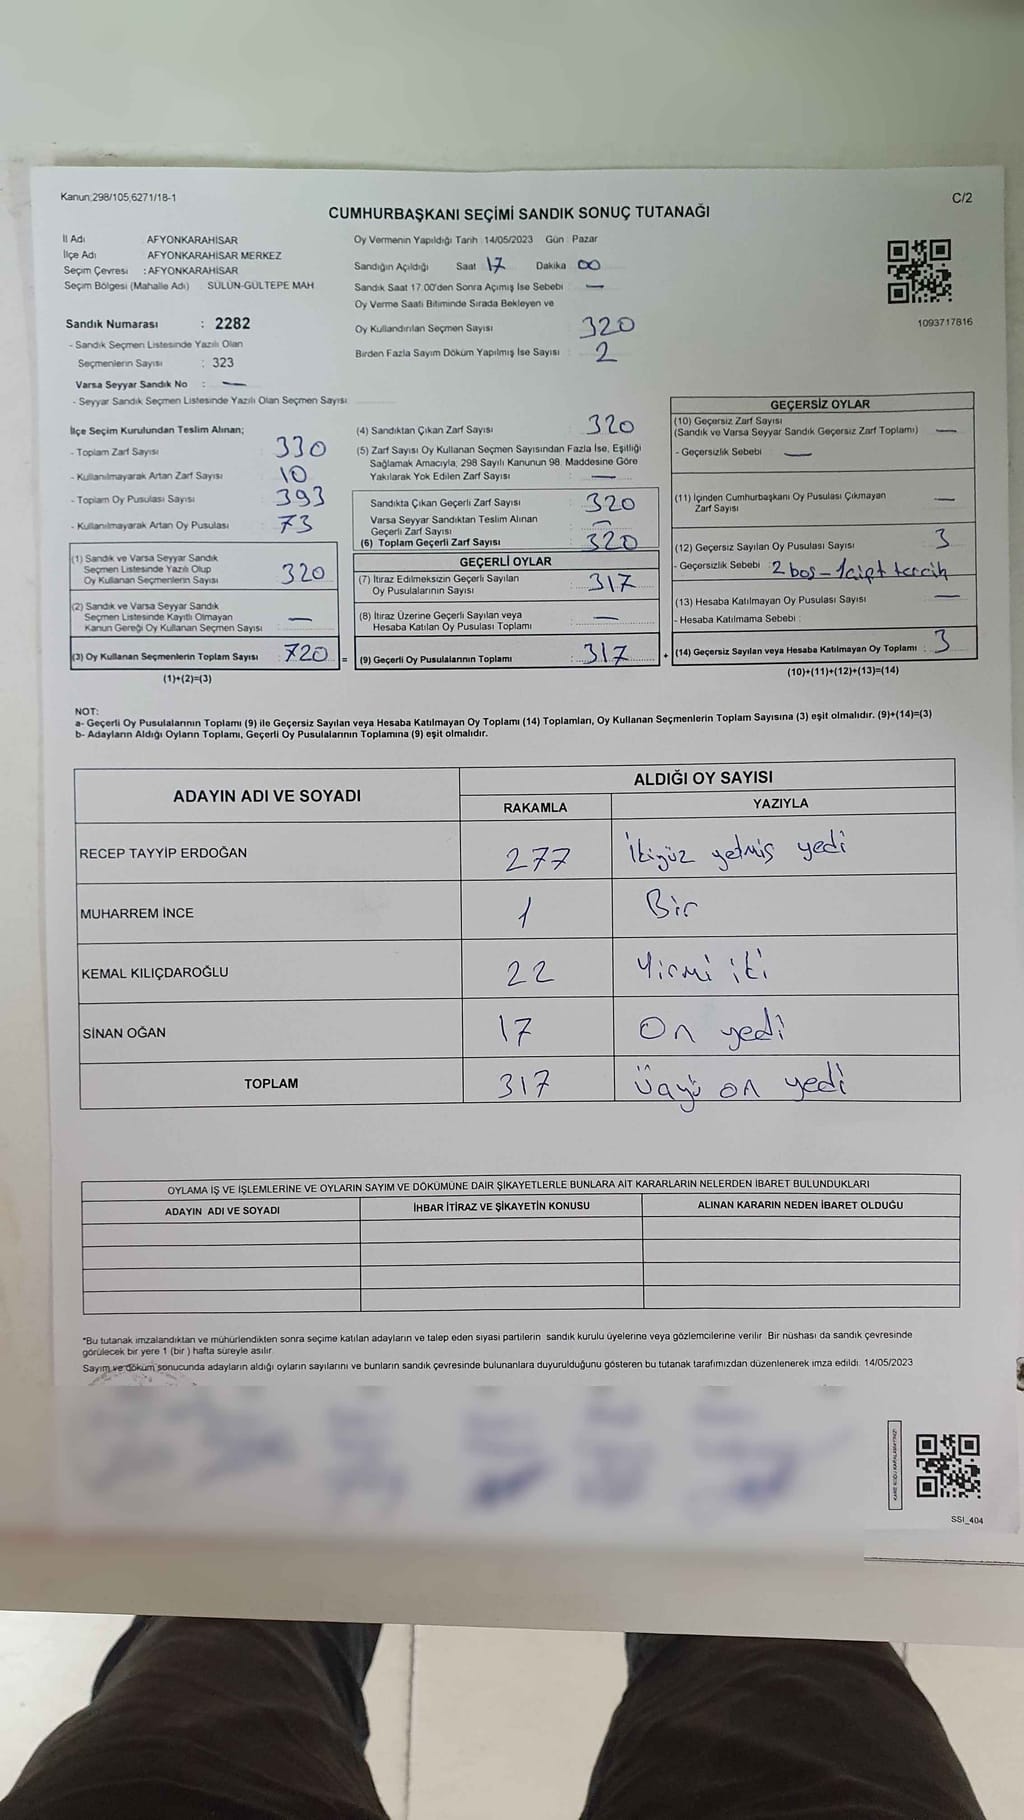 Kanun;298/105,6271/18-1
C/2
CUMHURBAŞKANI SEÇİMİ SANDIK SONUÇ TUTANAĞI
İl Adı AFYONKARAHİSAR
İlçe Adı AFYONKARAHİSAR MERKEZ
Seçim Çevresi : AFYONKARAHİSAR
Seçim Bölgesi (Mahalle Adı) SÜLÜN-GÜLTEPE MAH
Sandık Numarası : 2282
- Sandık Seçmen Listesinde Yazılı Olan
Seçmenlerin Sayısı : 323
Varsa Seyyar Sandık No : —
- Seyyar Sandık Seçmen Listesinde Yazılı Olan Seçmen Sayısı
Oy Vermenin Yapıldığı Tarih 14/05/2023 Gün : Pazar
Sandığın Açıldığı Saat 17 Dakika 00
Sandık Saat 17.00'den Sonra Açımış İse Sebebi —
Oy Verme Saati Bitiminde Sırada Bekleyen ve
Oy Kullandırılan Seçmen Sayısı 320
Birden Fazla Sayım Döküm Yapılmış İse Sayısı 2
1093717816
İlçe Seçim Kurulundan Teslim Alınan;
- Toplam Zarf Sayısı 330
- Kullanılmayarak Artan Zarf Sayısı 10
- Toplam Oy Pusulası Sayısı 393
- Kullanılmayarak Artan Oy Pusulası 73
(1) Sandık ve Varsa Seyyar Sandık
Seçmen Listesinde Yazılı Olup
Oy Kullanan Seçmenlerin Sayısı 320
(2) Sandık ve Varsa Seyyar Sandık
Seçmen Listesinde Kayıtlı Olmayan
Kanun Gereği Oy Kullanan Seçmen Sayısı —
(3) Oy Kullanan Seçmenlerin Toplam Sayısı : 720 =
(1)+(2)=(3)
(4) Sandıktan Çıkan Zarf Sayısı 320
(5) Zarf Sayısı Oy Kullanan Seçmen Sayısından Fazla İse, Eşitliği
Sağlamak Amacıyla, 298 Sayılı Kanunun 98. Maddesine Göre
Yakılarak Yok Edilen Zarf Sayısı —
Sandıkta Çıkan Geçerli Zarf Sayısı 320
Varsa Seyyar Sandıktan Teslim Alınan
Geçerli Zarf Sayısı —
(6) Toplam Geçerli Zarf Sayısı 320
GEÇERLİ OYLAR
(7) İtiraz Edilmeksizin Geçerli Sayılan
Oy Pusulalarının Sayısı 317
(8) İtiraz Üzerine Geçerli Sayılan veya
Hesaba Katılan Oy Pusulası Toplamı —
(9) Geçerli Oy Pusulalarının Toplamı : 317 +
GEÇERSİZ OYLAR
(10) Geçersiz Zarf Sayısı
(Sandık ve Varsa Seyyar Sandık Geçersiz Zarf Toplamı) —
- Geçersizlik Sebebi : —
(11) İçinden Cumhurbaşkanı Oy Pusulası Çıkmayan
Zarf Sayısı —
(12) Geçersiz Sayılan Oy Pusulası Sayısı 3
- Geçersizlik Sebebi : 2 boş - 1 çift tercih
(13) Hesaba Katılmayan Oy Pusulası Sayısı —
- Hesaba Katılmama Sebebi :
(14) Geçersiz Sayılan veya Hesaba Katılmayan Oy Toplamı : 3
(10)+(11)+(12)+(13)=(14)
NOT:
a- Geçerli Oy Pusulalarının Toplamı (9) ile Geçersiz Sayılan veya Hesaba Katılmayan Oy Toplamı (14) Toplamları, Oy Kullanan Seçmenlerin Toplam Sayısına (3) eşit olmalıdır. (9)+(14)=(3)
b- Adayların Aldığı Oyların Toplamı, Geçerli Oy Pusulalarının Toplamına (9) eşit olmalıdır.
ADAYIN ADI VE SOYADI ALDIĞI OY SAYISI
RAKAMLA YAZIYLA
RECEP TAYYİP ERDOĞAN 277 İkiyüz yetmiş yedi
MUHARREM İNCE 1 Bir
KEMAL KILIÇDAROĞLU 22 Yirmi iki
SİNAN OĞAN 17 On yedi
TOPLAM 317 Üçyü on yedi
OYLAMA İŞ VE İŞLEMLERİNE VE OYLARIN SAYIM VE DÖKÜMÜNE DAİR ŞİKAYETLERLE BUNLARA AİT KARARLARIN NELERDEN İBARET BULUNDUKLARI
ADAYIN ADI VE SOYADI İHBAR İTİRAZ VE ŞİKAYETİN KONUSU ALINAN KARARIN NEDEN İBARET OLDUĞU
"Bu tutanak imzalandıktan ve mühürlendikten sonra seçime katılan adayların ve talep eden siyasi partilerin sandık kurulu üyelerine veya gözlemcilerine verilir. Bir nüshası da sandık çevresinde
görülecek bir yere 1 (bir ) hafta süreyle asılır.
Sayım ve döküm sonucunda adayların aldığı oyların sayılarını ve bunların sandık çevresinde bulunanlara duyurulduğunu gösteren bu tutanak tarafımızdan düzenlenerek imza edildi. 14/05/2023
SSI_404